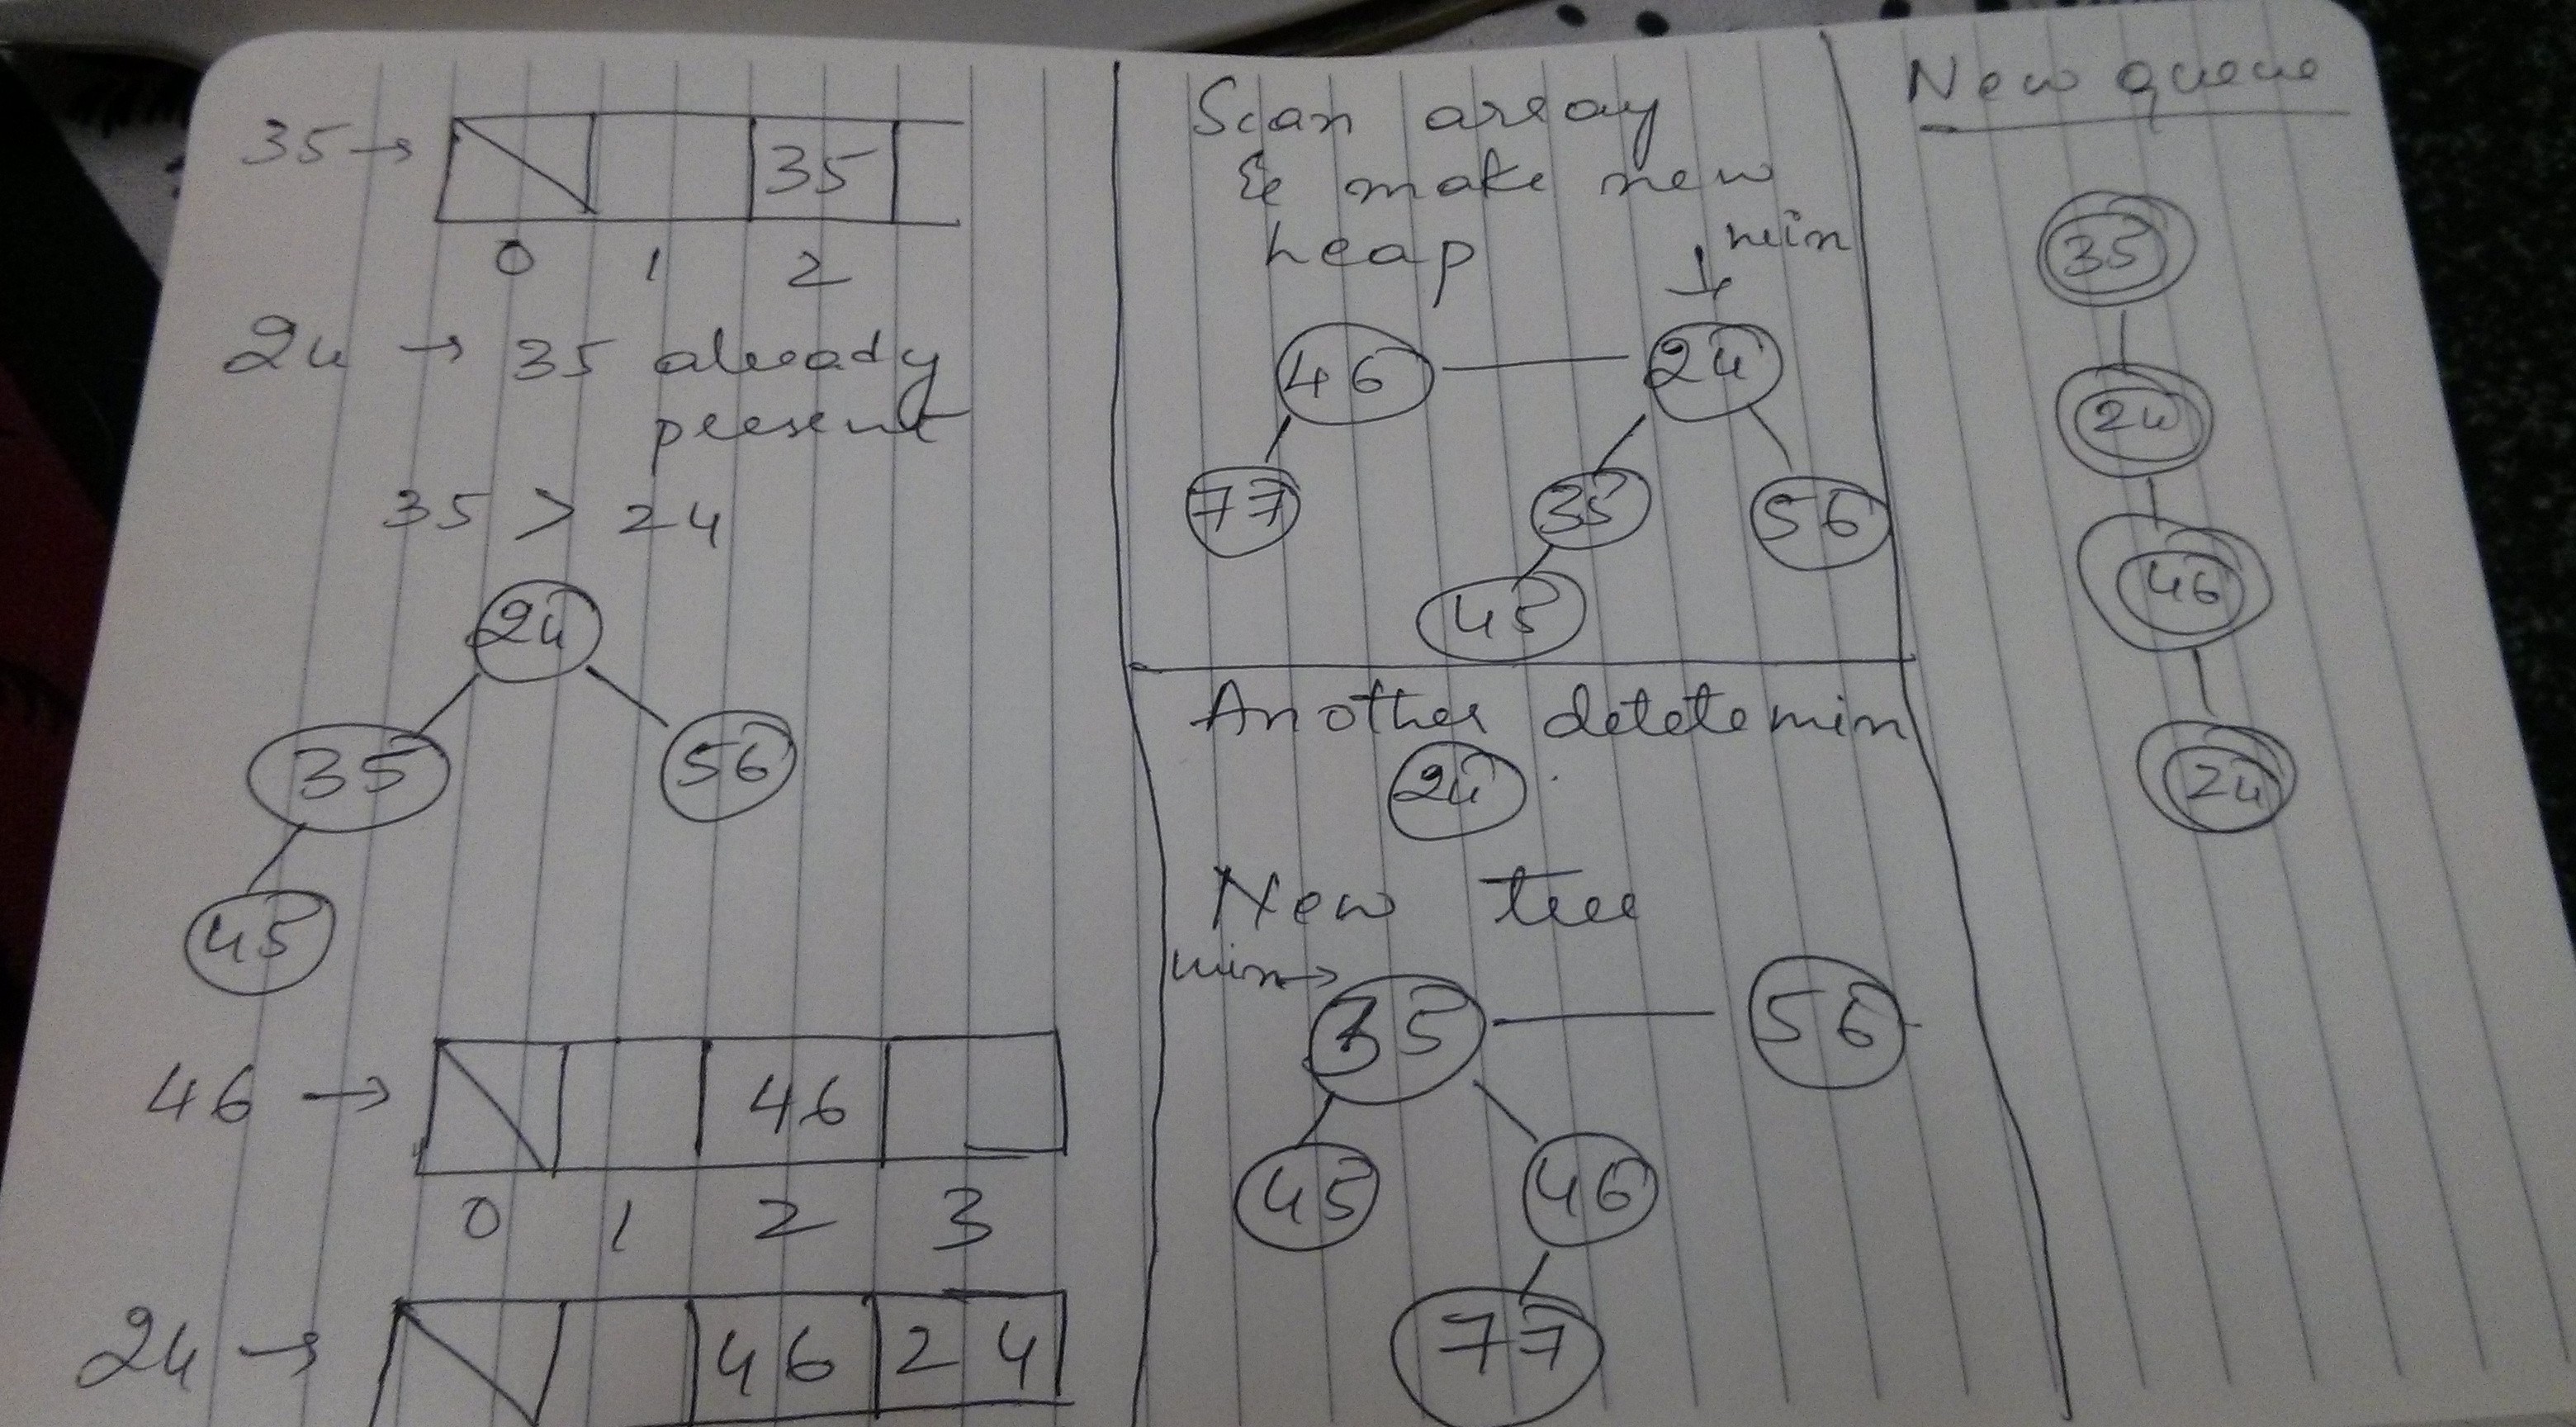 35 → 35
0 1 2
24 → 35 already
present
35 > 24
24
35 56
45
46 → 46
0 1 2 3
24 → 46 24
Scan array
& make new
heap
min
46 24
77 35 56
45
Another delete min
24
New tree
min→
35 56
45 46
77
New queue
35
24
46
24